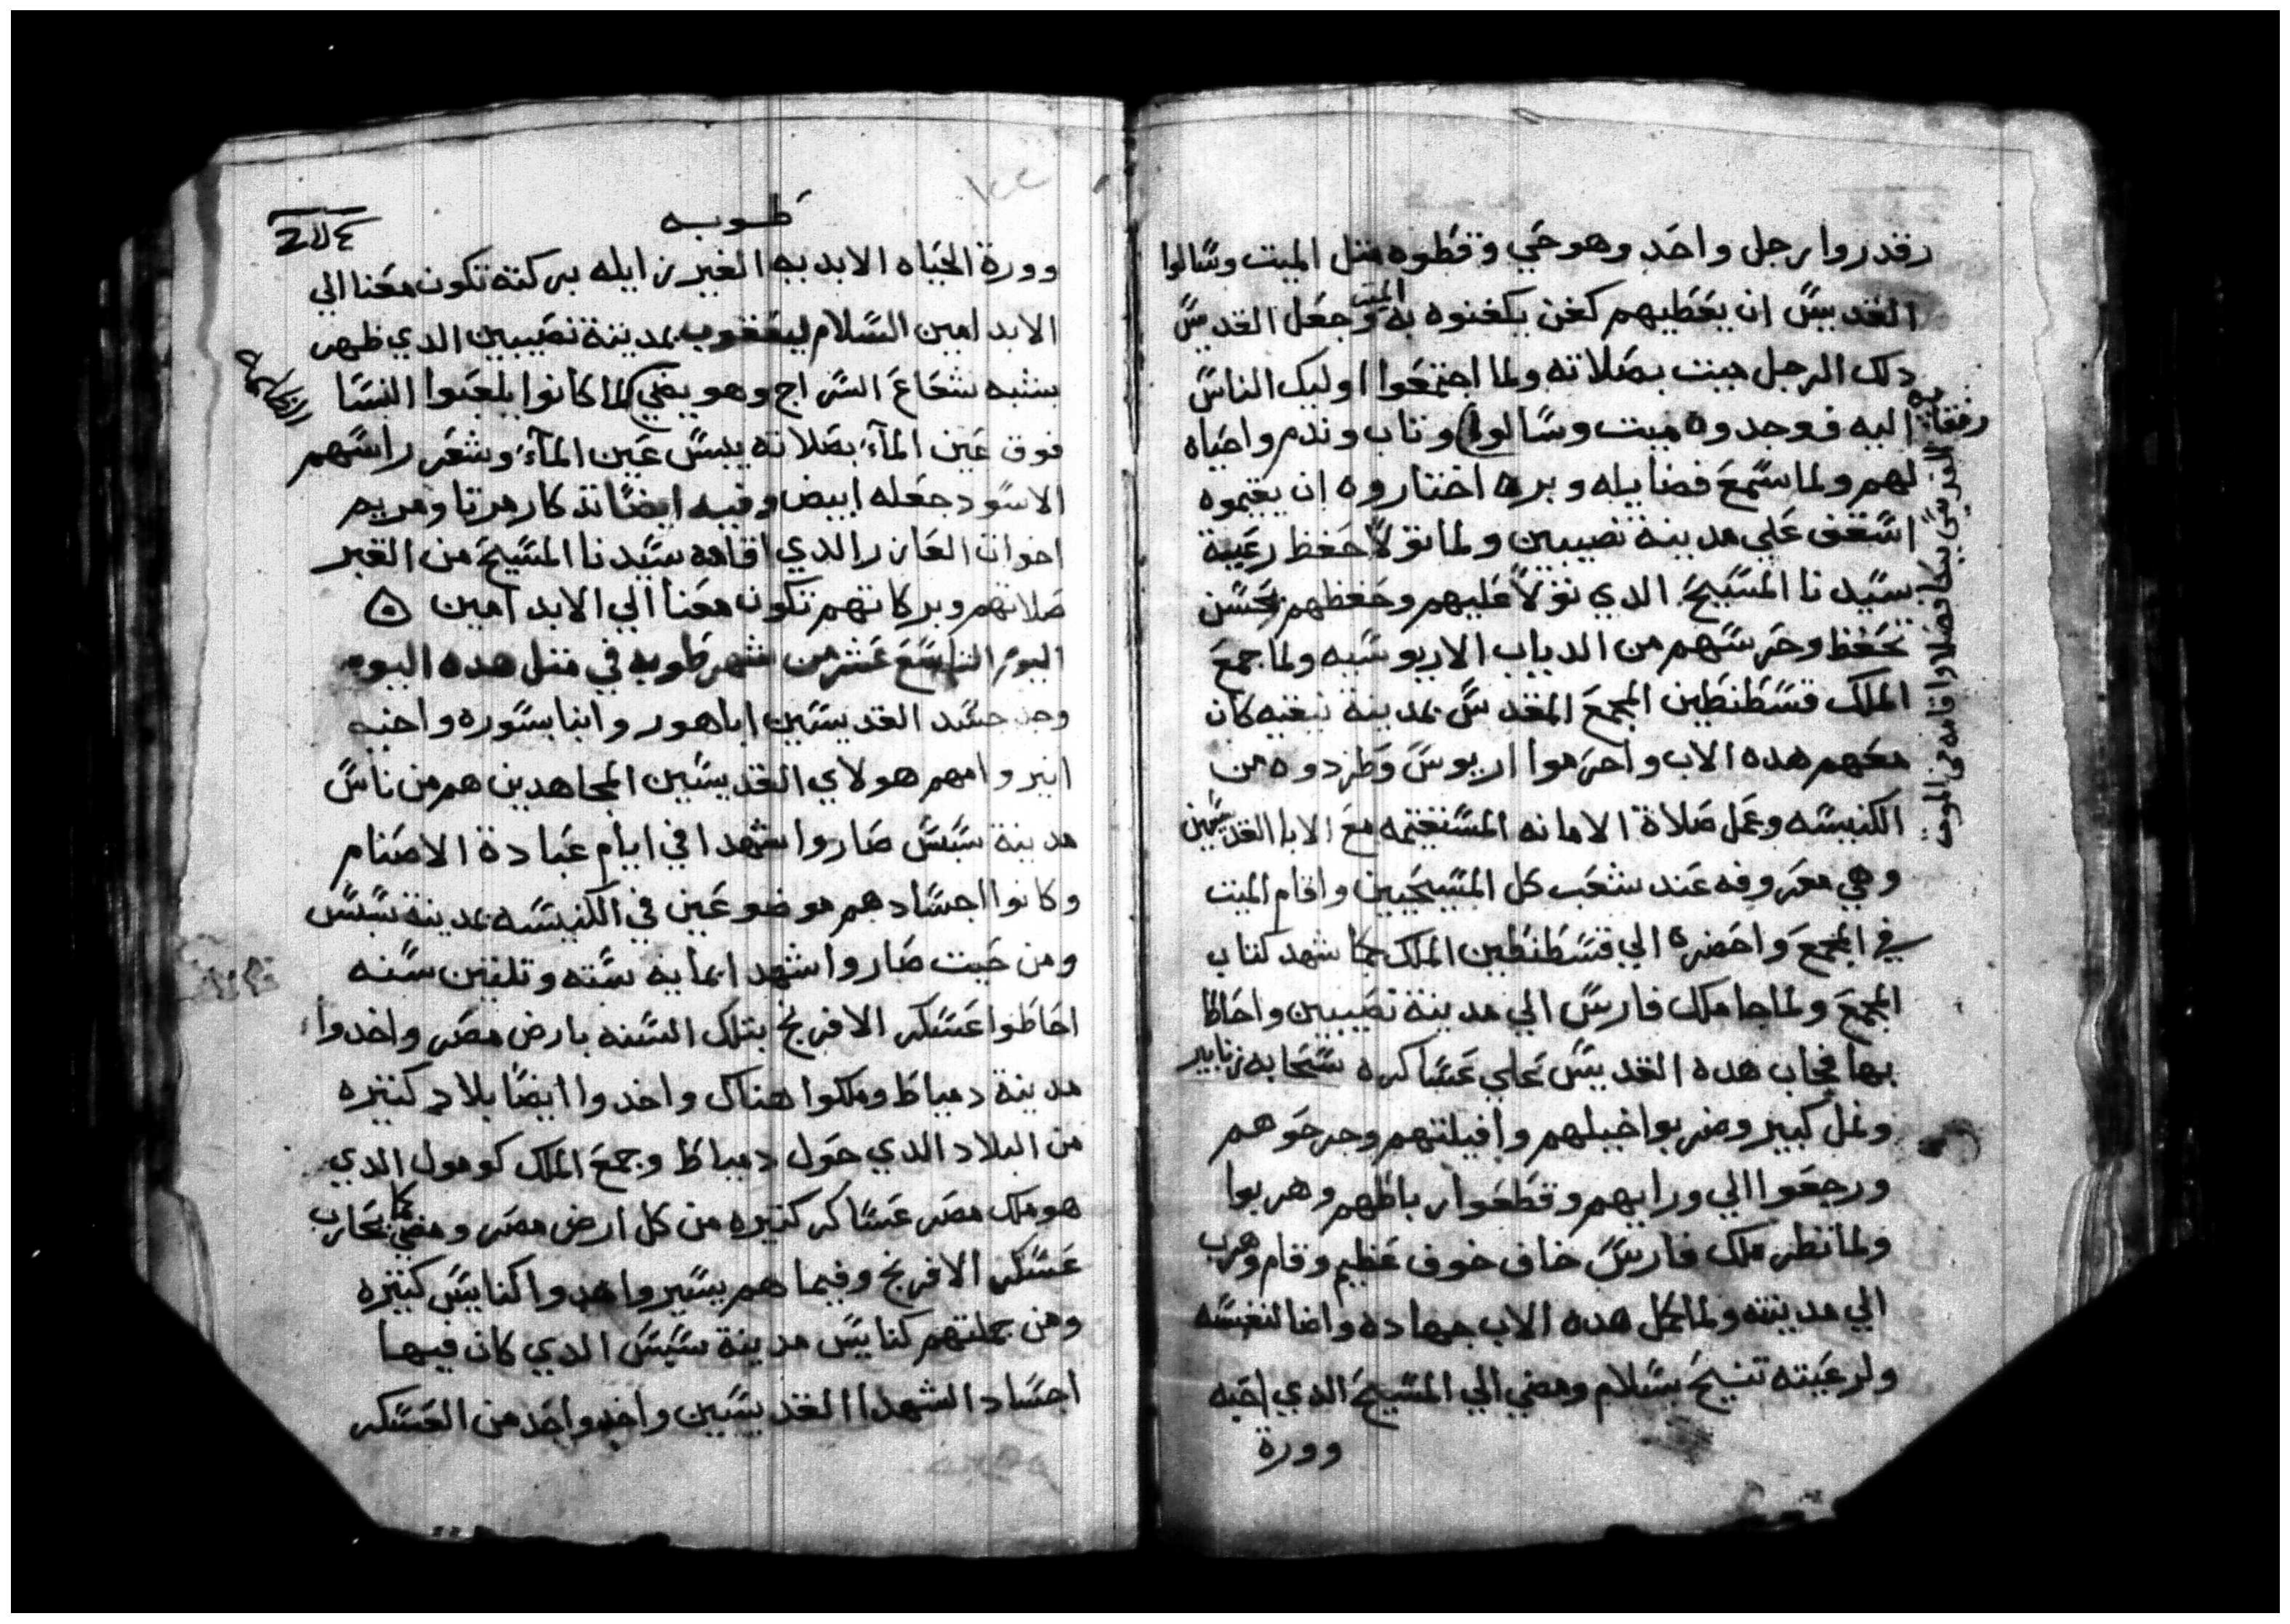 رقدروا رجل واحد وهو حي وغطوه متل الميت وسالوا
القديس ان يعطيهم كفن يكفنوه به الميت وجعل القديس
دلك الرجل ميت بصلاته ولما اجتمعوا اوليك الناس
رفقاته اليه فوجدوه ميت وسالوا وتاب وندم واحياه
القديس بصلا واقامه من الموت
لهم ولما سمع فضايله وبره اختاروه ان يقيموه
اسقف علي مدينة نصيبين ولما تولا حفظ رعية
سيدنا المسيح الدي تولا عليهم وحفظهم بحسن
تحفظ وحرسهم من الدياب الاريوسيه ولما جمع
الملك قسطنطين المجمع المقدس بمدينة نيقيه كان
معهم هده الاب واحرموا اريوس وطردوه من
الكنيسه وعمل صلاة الامانه المستقيمه مع الابا القديسين
وهي معروفه عند شعب كل المسيحيين واقام الميت
في المجمع واحضره الي قسطنطين الملك كما شهد كتاب
المجمع ولما جا ملك فارس الي مدينة نصيبين واحاط
بها فجاب هده القديس علي عساكره سحابه زنابير
ونمل كبير وضربوا خيلهم وافيلتهم وجرحوهم
ورجعوا الي ورايهم وقطعوا رباطهم وهربوا
ولما نظر ملك فارس خاف خوف عظيم وقام وهرب
الي مدينته ولما كمل هده الاب جهاده واضا لنفسه
ولرعيته تنيح بسلام ومضي الي المسيح الدي احبه
وورة
طوبه
وورة الحياه الابديه الغير زايله بركته تكون معنا الي
الابد امين السلام ليعقوب بمدينة نصيبين الدي ظهر
بشبه شعاع السراج وهو يضي لما كانوا يلعبوا النسا
فوق عين المآء بصلاته يبس عين المآء وشعر راسهم
الاسود جعله ابيض وفيه ايضا تدكار مرتا ومريم
اخوات العازر الدي اقامه سيدنا المسيح من القبر
صلاتهم وبركاتهم تكون معنا الي الابد امين
اليوم التاسع عشر من شهر طوبه في متل هده اليوم
وجد جسد القديسين اباهور وانبا بسوره واخيه
انبرو امهم هولاي القديسين المجاهدين هم من ناس
مدينة سبس صاروا شهدا في ايام عبادة الاصنام
وكانوا اجسادهم موضوعين في الكنيسه بمدينة سبس
ومن حيت صاروا شهدا تمانيه سته وتلتين سنه
احاطوا عسكر الافرنج بتلك السنه بارض مصر واخدوا
مدينة دمياط وملكوا هناك واخدوا ايضا بلاد كتيره
من البلاد الدي حول دمياط وجمع الملك كومول الدي
هو ملك مصر عساكر كتيره من كل ارض مصر ومضي كما يحارب
عسكر الافرنج وفيما هم بسير واهدوا كنايس كتيره
ومن جملتهم كنايس مدينة سبس الدي كان فيها
اجساد الشهدا القديسين واخد واحد من العسكر